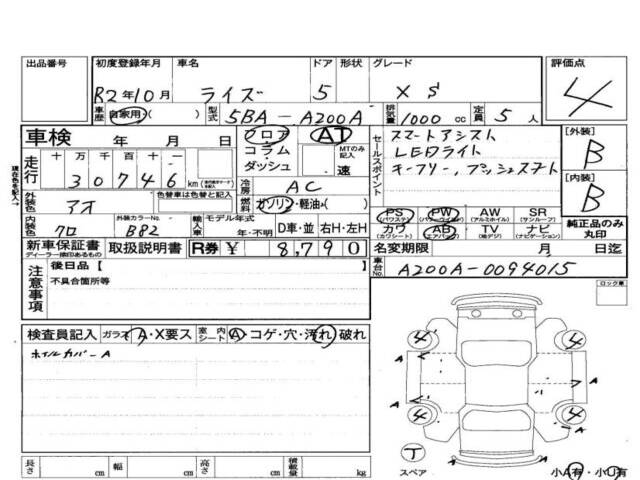 出品番号 初度登録年月 車名 ドア 形状 グレード 評価点
R2年10月 ライズ 5 XS 4
車歴 自家用・( ) 型式 5BA-A200A 排気量 1000cc 定員 5人
車検 年 月 日 フロア AT セールスポイント スマートアシスト [外装]
コラム MTのみ記入 LEDライト B
走行 十万千百十一 30746 km ダッシュ 速 キーフリー,プッシュスタート [内装]
現在色を記入→ 色替車は色替と記入 冷房 AC B
外装色 アオ 燃料 ガソリン・軽油・( ) PS(パワステ) PW(パワーウィンドー) AW(アルミホイル) SR(サンルーフ)
内装色 クロ 外装カラーNo. B82 輸入車 モデル年式 年・不明 D車・並 右H・左H カワ(カワシート) AB(エアバック) TV(地デジ) ナビ(ナビゲーション) 純正品のみ丸印
新車保証書 ディーラー捺印あるもの 取扱説明書 R券 ¥ 8,790 名変期限 月 日迄
注意事項 後日品【 】 車台No. A200A-0094015
不具合箇所等 ロック車
検査員記入 ガラス A・X要ス 室内シート A・コゲ・穴・汚れ・破れ
ホイルカバーA
4 4
A A
A
A
4 4
丁
スペア A 小A有・小U有
長さ cm 幅 cm 高さ cm 積載量 kg